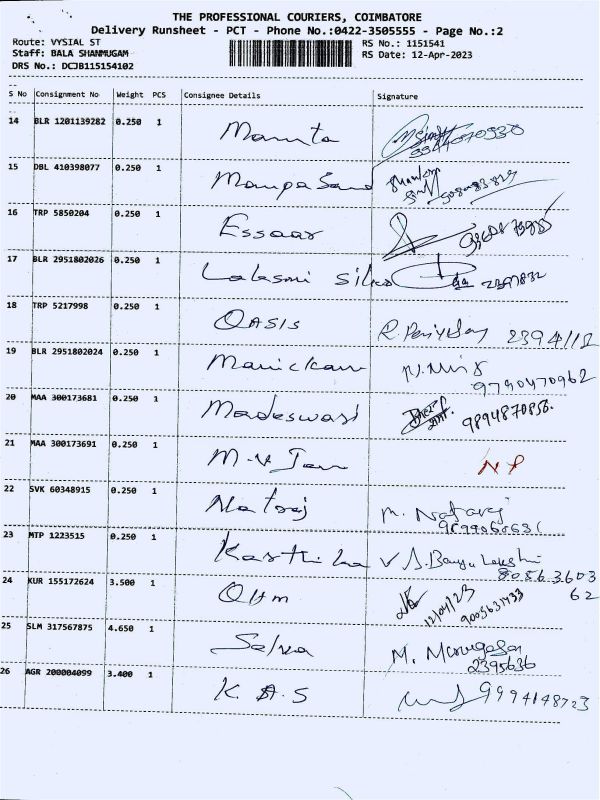 THE PROFESSIONAL COURIERS, COIMBATORE
Delivery Runsheet - PCT - Phone No.:0422-3505555 - Page No.:2
Route: VYSIAL ST RS No.: 1151541
Staff: BALA SHANMUGAM RS Date: 12-Apr-2023
DRS No.: 115154102
S No Consignment No Weight PCS Consignee Details Signature
14 BLR 1201139282 0.250 1 Mamta
15 DBL 410398077 0.250 1
16 TRP 5850204 0.250 1 Essaar
17 BLR 2951802026 0.250 1 Lakshmi Silks 2397832
18 TRP 5217998 0.250 1 OASIS
19 BLR 2951802024 0.250 1 Manickam 9790470962
20 MAA 300173681 0.250 1 Madeswari 9894870858.
21 MAA 300173691 0.250 1 M.V Jam NP
22 SVK 60348915 0.250 1 Natraj M. Natraj
23 MTP 1223515 0.250 1 Karthika
80563603
62
24 KUR 155172624 3.500 1 OHM 12/04/23
25 SLM 317567875 4.650 1 Selva M. Murugesan
2395636
26 AGR 200004099 3.400 1 K.A.S 9994148723